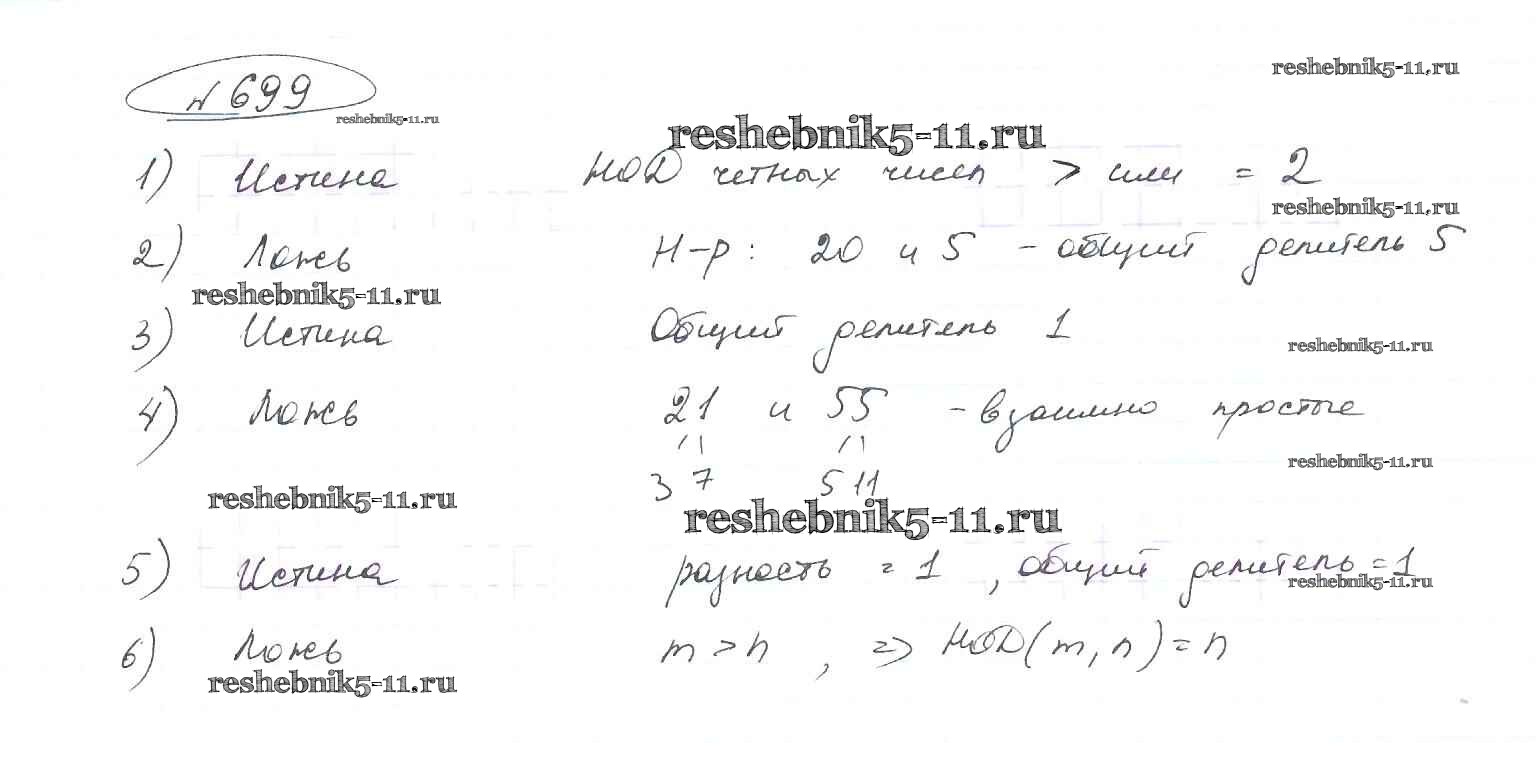 reshebnik5-11.ru
№ 699
reshebnik5-11.ru
reshebnik5-11.ru
1) Истина НОД четных чисел > или = 2
reshebnik5-11.ru
2) Ложь Н-р: 20 и 5 - общий делитель 5
reshebnik5-11.ru
3) Истина Общий делитель 1
reshebnik5-11.ru
4) Ложь 21 и 55 - взаимно простые
reshebnik5-11.ru
3 7 5 11
reshebnik5-11.ru
reshebnik5-11.ru
5) Истина разность = 1, общий делитель = 1
reshebnik5-11.ru
6) Ложь m > n, => НОД(m, n) = n
reshebnik5-11.ru